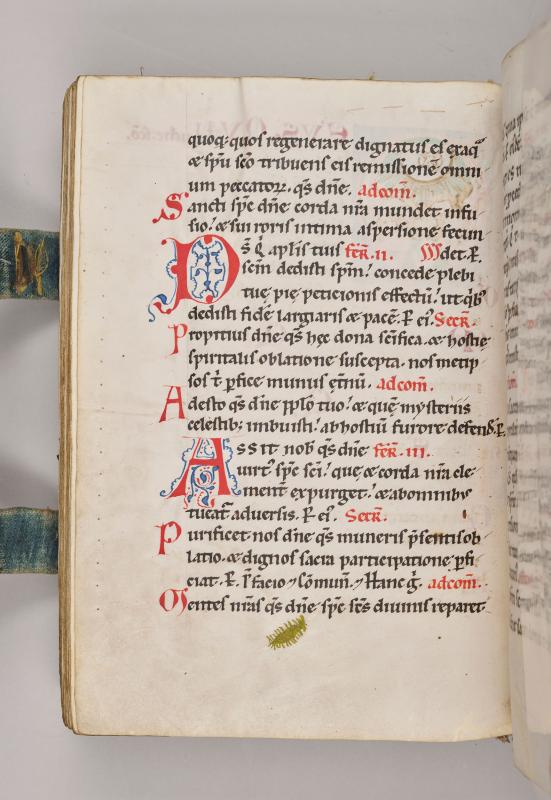 quoq; quos regenerare dignatus es ex aqͣ
⁊ spũ sc̃o tribuens eis remissionẽ omni
um peccatoꝝ. qs̃ dñe. ad com̃.
Sancti spc̃ dñe corda nr̃a mundet infu
sio. ⁊ sui roris intima aspersione fecun
Ds̃ q̇ ap̃lis tuis fer̃. ii. det. P̃.
sc̃m dedisti spm̃. concede plebi
tuę pię peticionis effectũ. ut qͥb;
dedisti fidẽ largiaris ⁊ pacẽ. P̃ eͥ. Secr̃.
Propitius dñe qs̃ hęc dona sc̃ifica. ⁊ hostię
spiritalis oblatione suscepta. nosmetip
sos t̃ ꝑfice munus ęt̃nũ. ad com̃.
Adesto qs̃ dñe pp̃lo tuo. ⁊ quẽ mysteriis
celestib; imbuisti. ab hostiũ furore defend̃. P̃.
Assit nob̃ qs̃ dñe fer̃. iii.
uirt᷒ spc̃ sc̃i. que ⁊ corda nr̃a cle
ment᷒ expurget. ⁊ ab omnib;
tueat᷒ aduersis. P̃ eͥ. Secr̃.
Purificet nos dñe qs̃ muneris p̃sentis ob
latio. ⁊ dignos sacra participatione ꝑfi
ciat. P̃. p̃facio ⁊ cõmun̄. ⁊ Hanc g̊. ad com̃.
Mentes nr̃as qs̃ dñe spc̃ sc̃s diuinis reparet